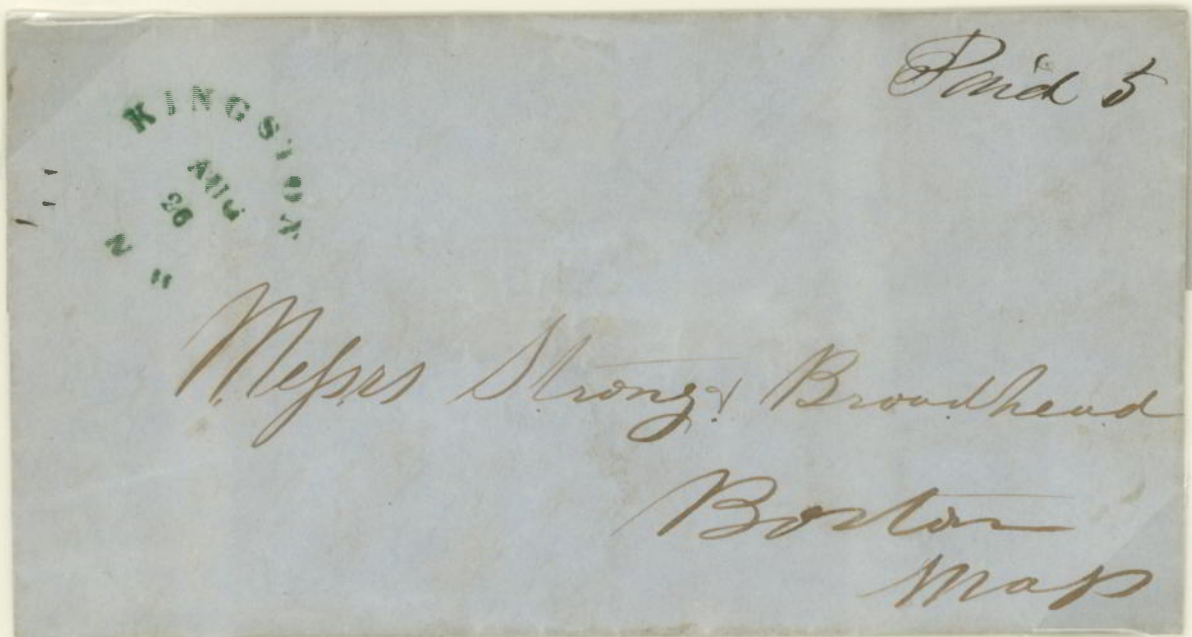 Paid 5
KINGSTON
AUG
26
N H
Messrs Strong & Broadhead
Boston
Mass